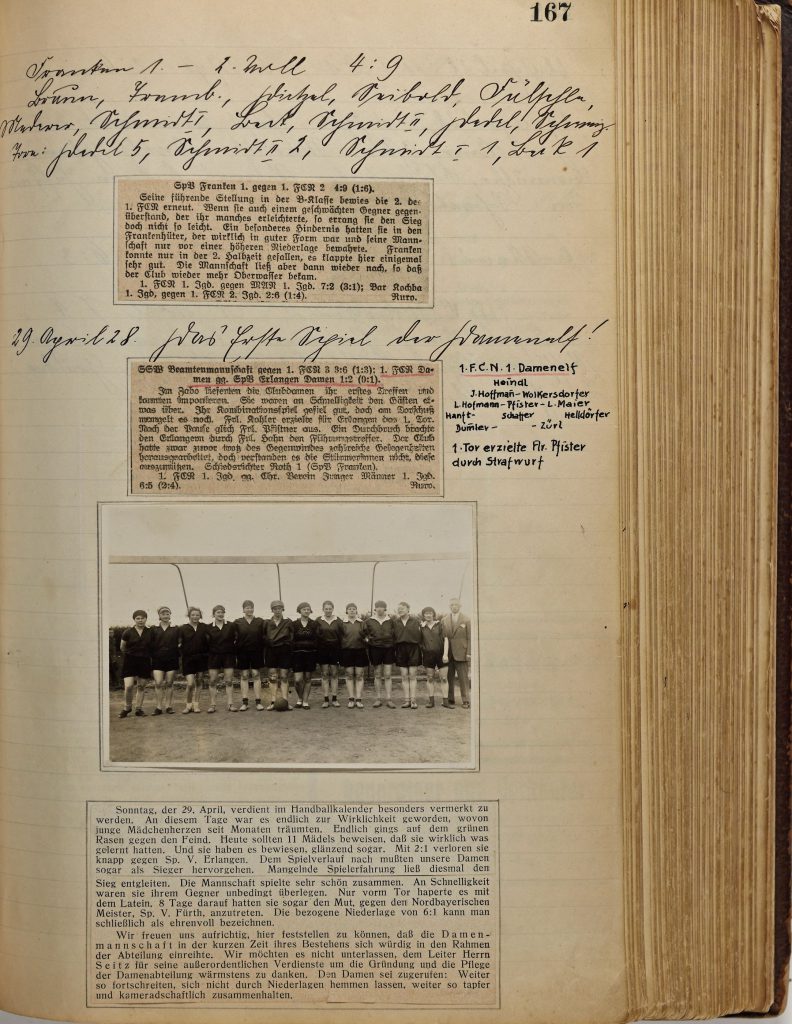 167
Franken 1. – 2. Voll 4:9
Braun, Tramb., Dietzel, Seibold, Fülschle,
Mederer, Schmidt I, Beck, Schmidt II, Dedel,
Tore: Dedel 5, Schmidt II 2, Schmidt I 1, Beck 1
SpV Franken 1. gegen 1. FCN 2 4:9 (1:6).
Seine führende Stellung in der B-Klasse bewies die 2. des
1. FCN erneut. Wenn sie auch einem geschwächten Gegner gegen-
überstand, der ihr manches erleichterte, so errang sie den Sieg
doch nicht so leicht. Ein besonderes Hindernis hatten sie in dem
Frankenhüter, der wirklich in guter Form war und seine Mann-
schaft nur vor einer höheren Niederlage bewahrte. Franken
konnte nur in der 2. Halbzeit gefallen, es klappte hier einigemal
sehr gut. Die Mannschaft ließ aber dann wieder nach, so daß
der Club wieder mehr Oberwasser bekam.
1. FCN 1. Jgd. gegen MAN 1. Jgd. 7:2 (3:1); Bar Kochba
1. Jgd. gegen 1. FCN 2. Jgd. 2:6 (1:4). Ruro.
29. April 28. Das Erste Spiel der Damenelf!
SSV Beamtenmannschaft gegen 1. FCN 3 3:6 (1:3); 1. FCN Da-
men gg. SpV Erlangen Damen 1:2 (0:1).
Im Zabo lieferten die Clubdamen ihr erstes Treffen und
konnten imponieren. Sie waren an Schnelligkeit den Gästen et-
was über. Ihr Kombinationsspiel gefiel gut, doch am Torschuß
mangelt es noch. Frl. Kohler erzielte für Erlangen das 1. Tor.
Nach der Pause glich Frl. Pfistner aus. Ein Durchbruch brachte
den Erlangern durch Frl. Hahn den Führungstreffer. Der Club
hatte zwar zuvor trotz des Gegenwindes zahlreiche Gelegenheiten
herausgearbeitet, doch verstanden es die Stürmerinnen nicht, diese
auszunützen. Schiedsrichter Roth 1 (SpV Franken).
1. FCN 1. Jgd. gg. Chr. Verein Junger Männer 1. Jgd.
6:5 (2:4). Ruro.
1. F.C.N. 1. Damenelf
Heindl
J. Hoffman – Wolkersdorfer
L. Hofmann – Pfister – L. Maier
Hanft – Schaffer Helldörfer
Dümler – – Zürl
1. Tor erzielte Flr. Pfister
durch Strafwurf
Sonntag, der 29. April, verdient im Handballkalender besonders vermerkt zu
werden. An diesem Tage war es endlich zur Wirklichkeit geworden, wovon
junge Mädchenherzen seit Monaten träumten. Endlich gings auf dem grünen
Rasen gegen den Feind. Heute sollten 11 Mädels beweisen, daß sie wirklich was
gelernt hatten. Und sie haben es bewiesen, glänzend sogar. Mit 2:1 verloren sie
knapp gegen Sp. V. Erlangen. Dem Spielverlauf nach mußten unsere Damen
sogar als Sieger hervorgehen. Mangelnde Spielerfahrung ließ diesmal den
Sieg entgleiten. Die Mannschaft spielte sehr schön zusammen. An Schnelligkeit
waren sie ihrem Gegner unbedingt überlegen. Nur vorm Tor haperte es mit
dem Latein. 8 Tage darauf hatten sie sogar den Mut, gegen den Nordbayerischen
Meister, Sp. V. Fürth, anzutreten. Die bezogene Niederlage von 6:1 kann man
schließlich als ehrenvoll bezeichnen.
Wir freuen uns aufrichtig, hier feststellen zu können, daß die Damen-
mannschaft in der kurzen Zeit ihres Bestehens sich würdig in den Rahmen
der Abteilung einreihte. Wir möchten es nicht unterlassen, dem Leiter Herrn
Seitz für seine außerordentlichen Verdienste um die Gründung und die Pflege
der Damenabteilung wärmstens zu danken. Den Damen sei zugerufen: Weiter
so fortschreiten, sich nicht durch Niederlagen hemmen lassen, weiter so tapfer
und kameradschaftlich zusammenhalten.